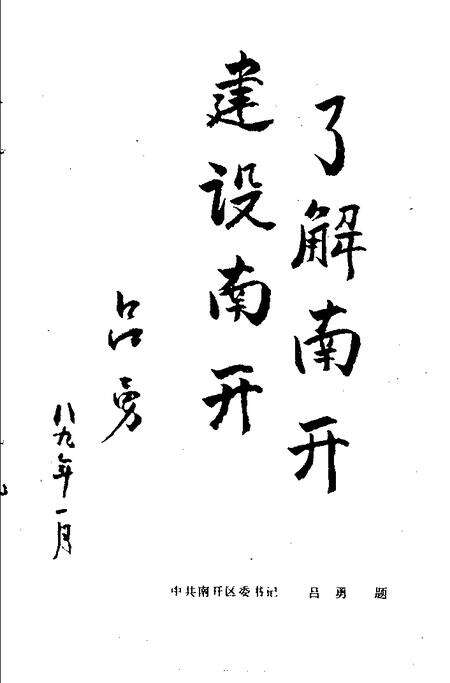 了解南开
建设南开
吕勇
八九年一月
中共南开区委书记 吕勇 题